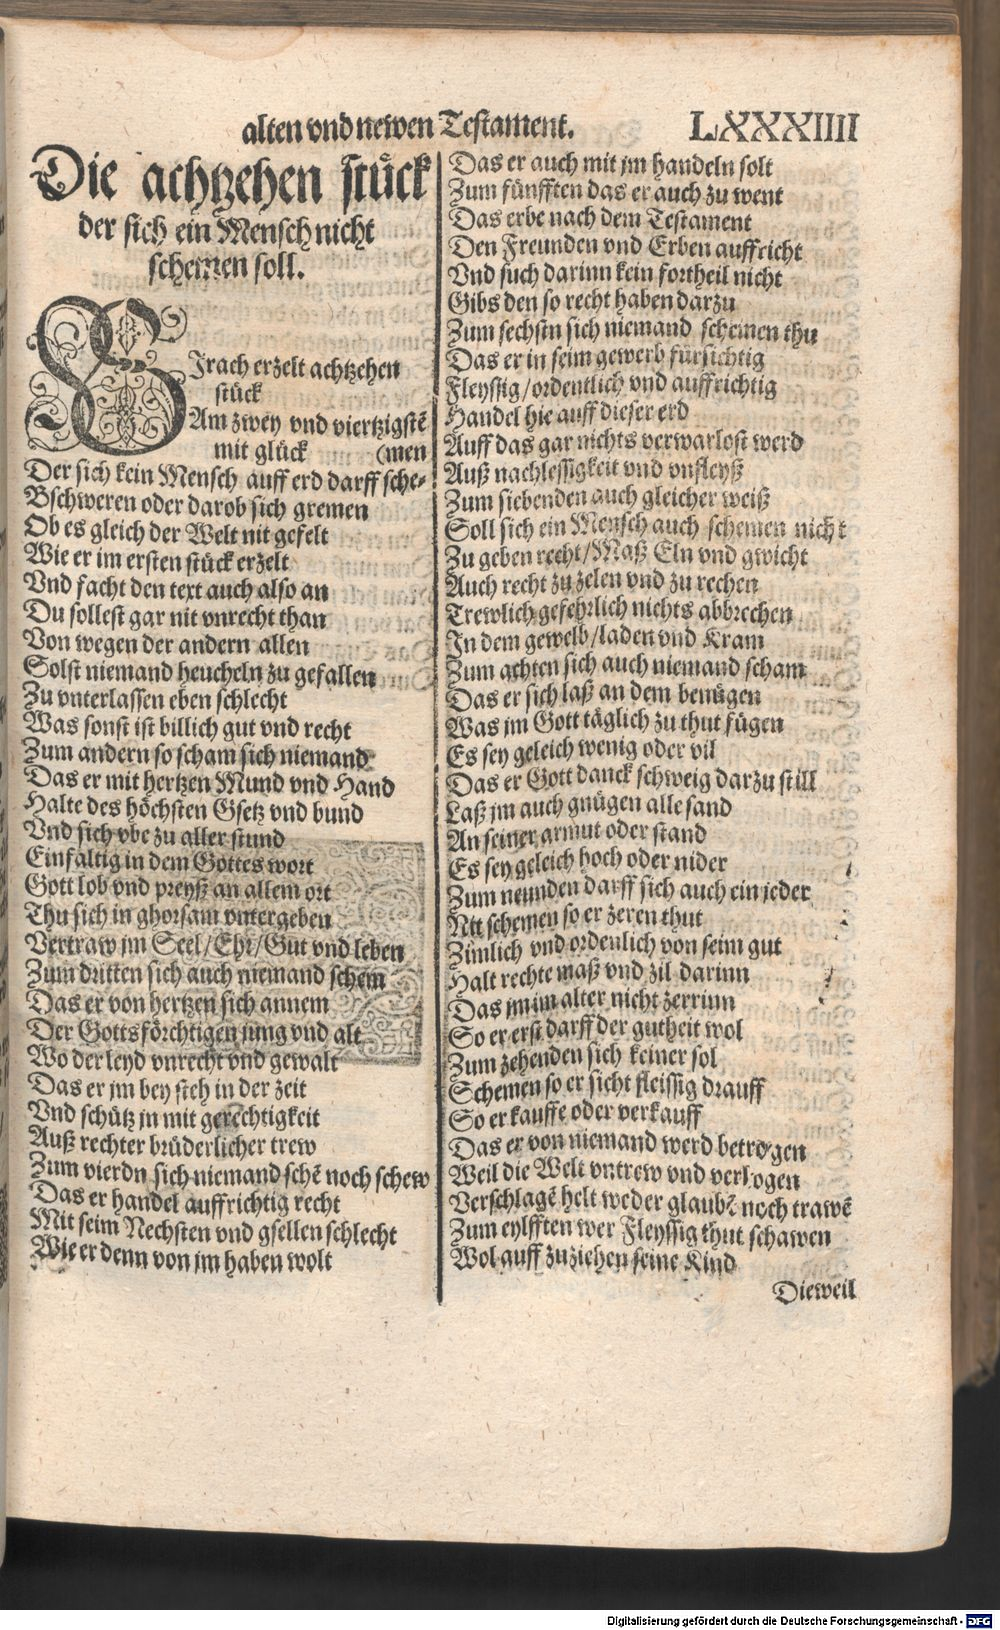 alten vnd newen Testament. LXXXIIII
Die achtzehen stück
der sich ein Mensch nicht
schemen soll.
SIrach erzelt achtzehen
stück
Am zwey vnd viertzigstē
mit glück (men
Der sich kein Mensch auff erd darff sche-
Bschweren oder darob sich gremen
Ob es gleich der Welt nit gefelt
Wie er im ersten stück erzelt
Vnd facht den text auch also an
Du sollest gar nit vnrecht than
Von wegen der andern allen
Solst niemand heucheln zu gefallen
Zu vnterlassen eben schlecht
Was sonst ist billich gut vnd recht
Zum andern so scham sich niemand
Das er mit hertzen Mund vnd Hand
Halte des höchsten Gsetz vnd bund
Vnd sich vbe zu aller stund
Einfaltig in dem Gottes wort
Gott lob vnd preyß an allem ort
Thu sich in ghorsam vntergeben
Vertraw jm Seel/Ehr/Gut vnd leben
Zum dritten sich auch niemand schem
Das er von hertzen sich annem
Der Gottsförchtigen jung vnd alt
Wo der leyd vnrecht vnd gewalt
Das er jm bey steh in der zeit
Vnd schütz jn mit gerechtigkeit
Auß rechter brüderlicher trew
Zum vierdn sich niemand schē noch schew
Das er handel auffrichtig recht
Mit seim Nechsten vnd gsellen schlecht
Wie er denn von jm haben wolt
Das er auch mit jm handeln solt
Zum fünfften das er auch zu went
Das erbe nach dem Testament
Den Freunden vnd Erben auffricht
Vnd such darinn kein fortheil nicht
Gibs den so recht haben darzu
Zum sechstn sich niemand schemen thu
Das er in seim gewerb fürsichtig
Fleyssig/ordentlich vnd auffrichtig
Handel hie auff dieser erd
Auff das gar nichts verwarlost werd
Auß nachlessigkeit vnd vnfleyß
Zum siebenden auch gleicher weiß
Soll sich ein Mensch auch schemen nicht
Zu geben recht/Maß Eln vnd gwicht
Auch recht zu zelen vnd zu rechen
Trewlich gefehrlich nichts abbrechen
In dem gewelb/laden vnd Kram
Zum achten sich auch niemand scham
Das er sich laß an dem benügen
Was jm Gott täglich zu thut fügen
Es sey geleich wenig oder vil
Das er Gott danck schweig darzu still
Laß jm auch gnügen alle sand
An seiner armut oder stand
Es sey geleich hoch oder nider
Zum neunden darff sich auch ein jeder
Nit schemen so er zeren thut
Zimlich vnd ordenlich von seim gut
Halt rechte maß vnd zil darinn
Das jm im alter nicht zerrinn
So er erst darff der gutheit wol
Zum zehenden sich keiner sol
Schemen so er sicht fleissig drauff
So er kauffe oder verkauff
Das er von niemand werd betrogen
Weil die Welt vntrew vnd verlogen
Verschlagē helt weder glaubē noch trawē
Zum eylfften wer Fleyssig thut schawen
Wol auff zuziehen seine Kind
Dieweil
Digitalisierung gefördert durch die Deutsche Forschungsgemeinschaft - DFG